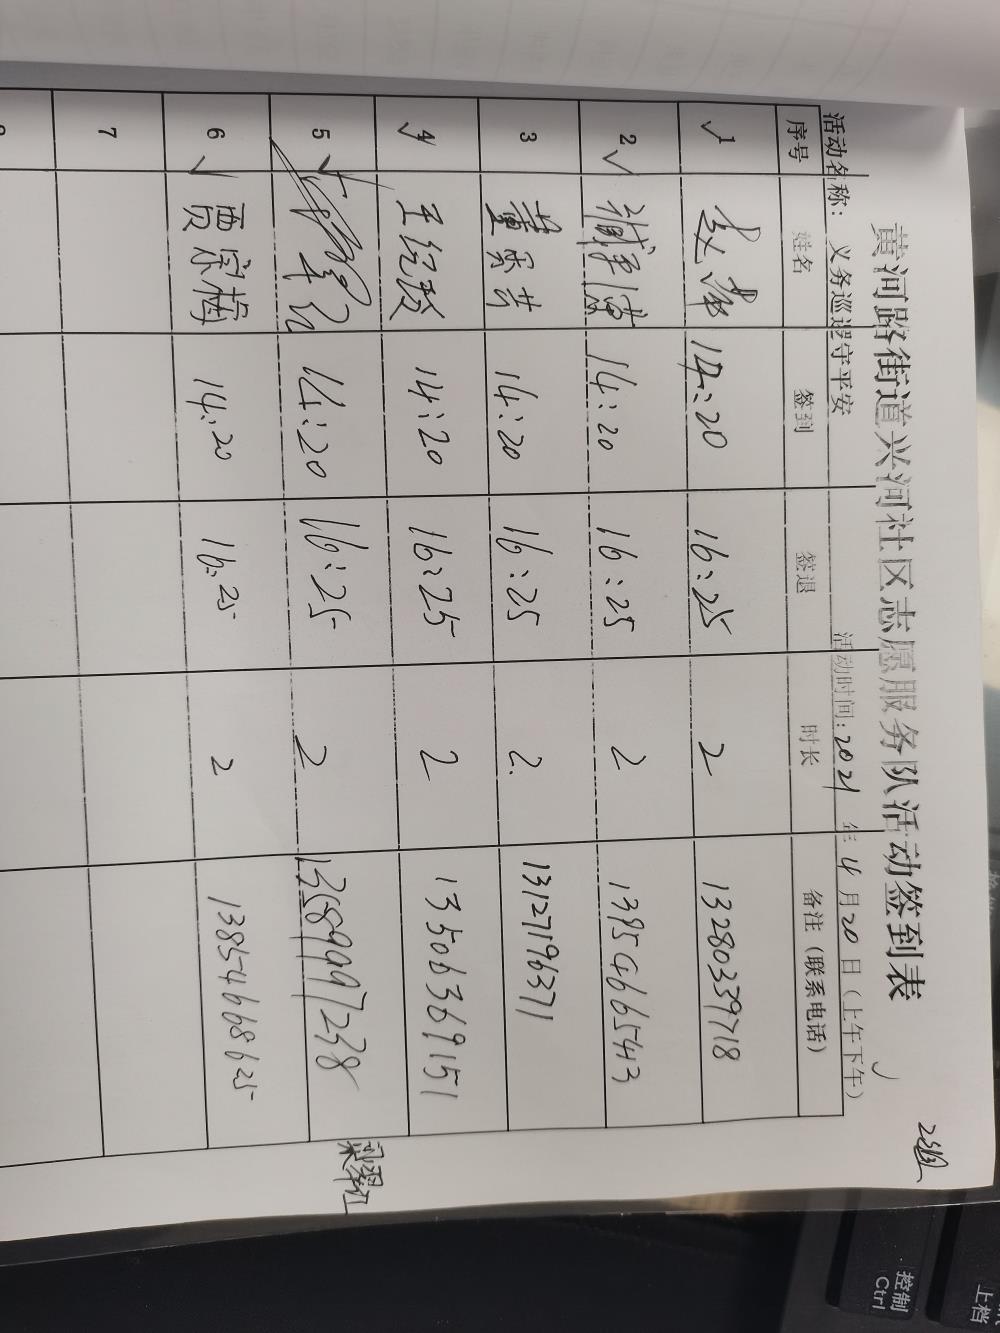 黄河路街道兴河社区志愿服务队活动签到表
活动名称：义务巡逻守平安 活动时间：2021年4月20日（上午下午）
序号 姓名 签到 签退 时长 备注（联系电话）
1 14:20 16:25 2 13280339718
2 14:20 16:25 2 13954665413
3 董乐芸 14:20 16:25 2 13127196371
4 王纪玲 14:20 16:25 2 13506369151
5 14:20 16:25 2 13589997238
6 贾宗梅 14:20 16:25 2 13854668625
7
8
控制
Ctrl
上档